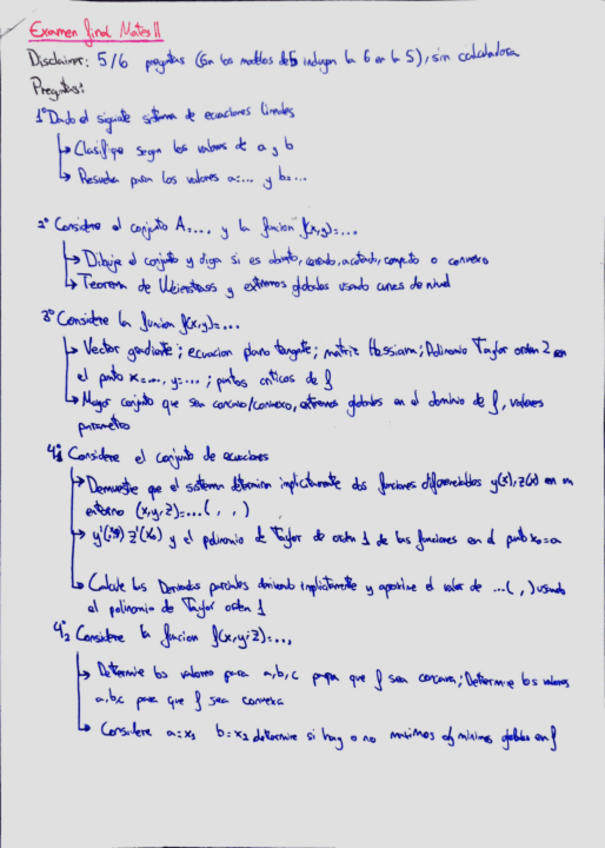 Examen final Mates II
Disclaimer: 5/6 preguntas (En los modelos de 5 incluyen la 6 en la 5), sin calculadora
Preguntas:
1º Dado el siguiente sistema de ecuaciones lineales
↳ Clasifique segun los valores de a y b
↳ Resuelva para los valores a=... y b=...
2º Considere el conjunto A=..., y la funcion f(x,y)=...
↳ Dibuje el conjunto y diga si es abierto, cerrado, acotado, compacto o convexo
↳ Teorema de Weierstrass y extremos globales usando curvas de nivel
3º Considere la funcion f(x,y)=...
↳ Vector gradiente; ecuacion plano tangente; matriz Hessiana; Polinomio Taylor orden 2 en
el punto x=..., y=...; puntos criticos de f
↳ Mayor conjunto que sea concavo/convexo, extremos globales en el dominio de f, valores
parametro
4º1 Considere el conjunto de ecuaciones
↳ Demuestre que el sistema determina implicitamente dos funciones diferenciables y(x), z(x) en un
entorno (x,y,z)=...( , , )
↳ y'(x0) z'(x0) y el polinomio de Taylor de orden 1 de las funciones en el punto x0=a
↳ Calcule las Derivadas parciales derivando implicitamente y aproxime el valor de ...( , ) usando
el polinomio de Taylor orden 1
4º2 Considere la funcion f(x,y,z)=...
↳ Determine los valores para a,b,c para que f sea concava; Determine los valores
a,b,c para que f sea convexa
↳ Considere a=x1 b=x2 determine si hay o no maximos o minimos globales en f